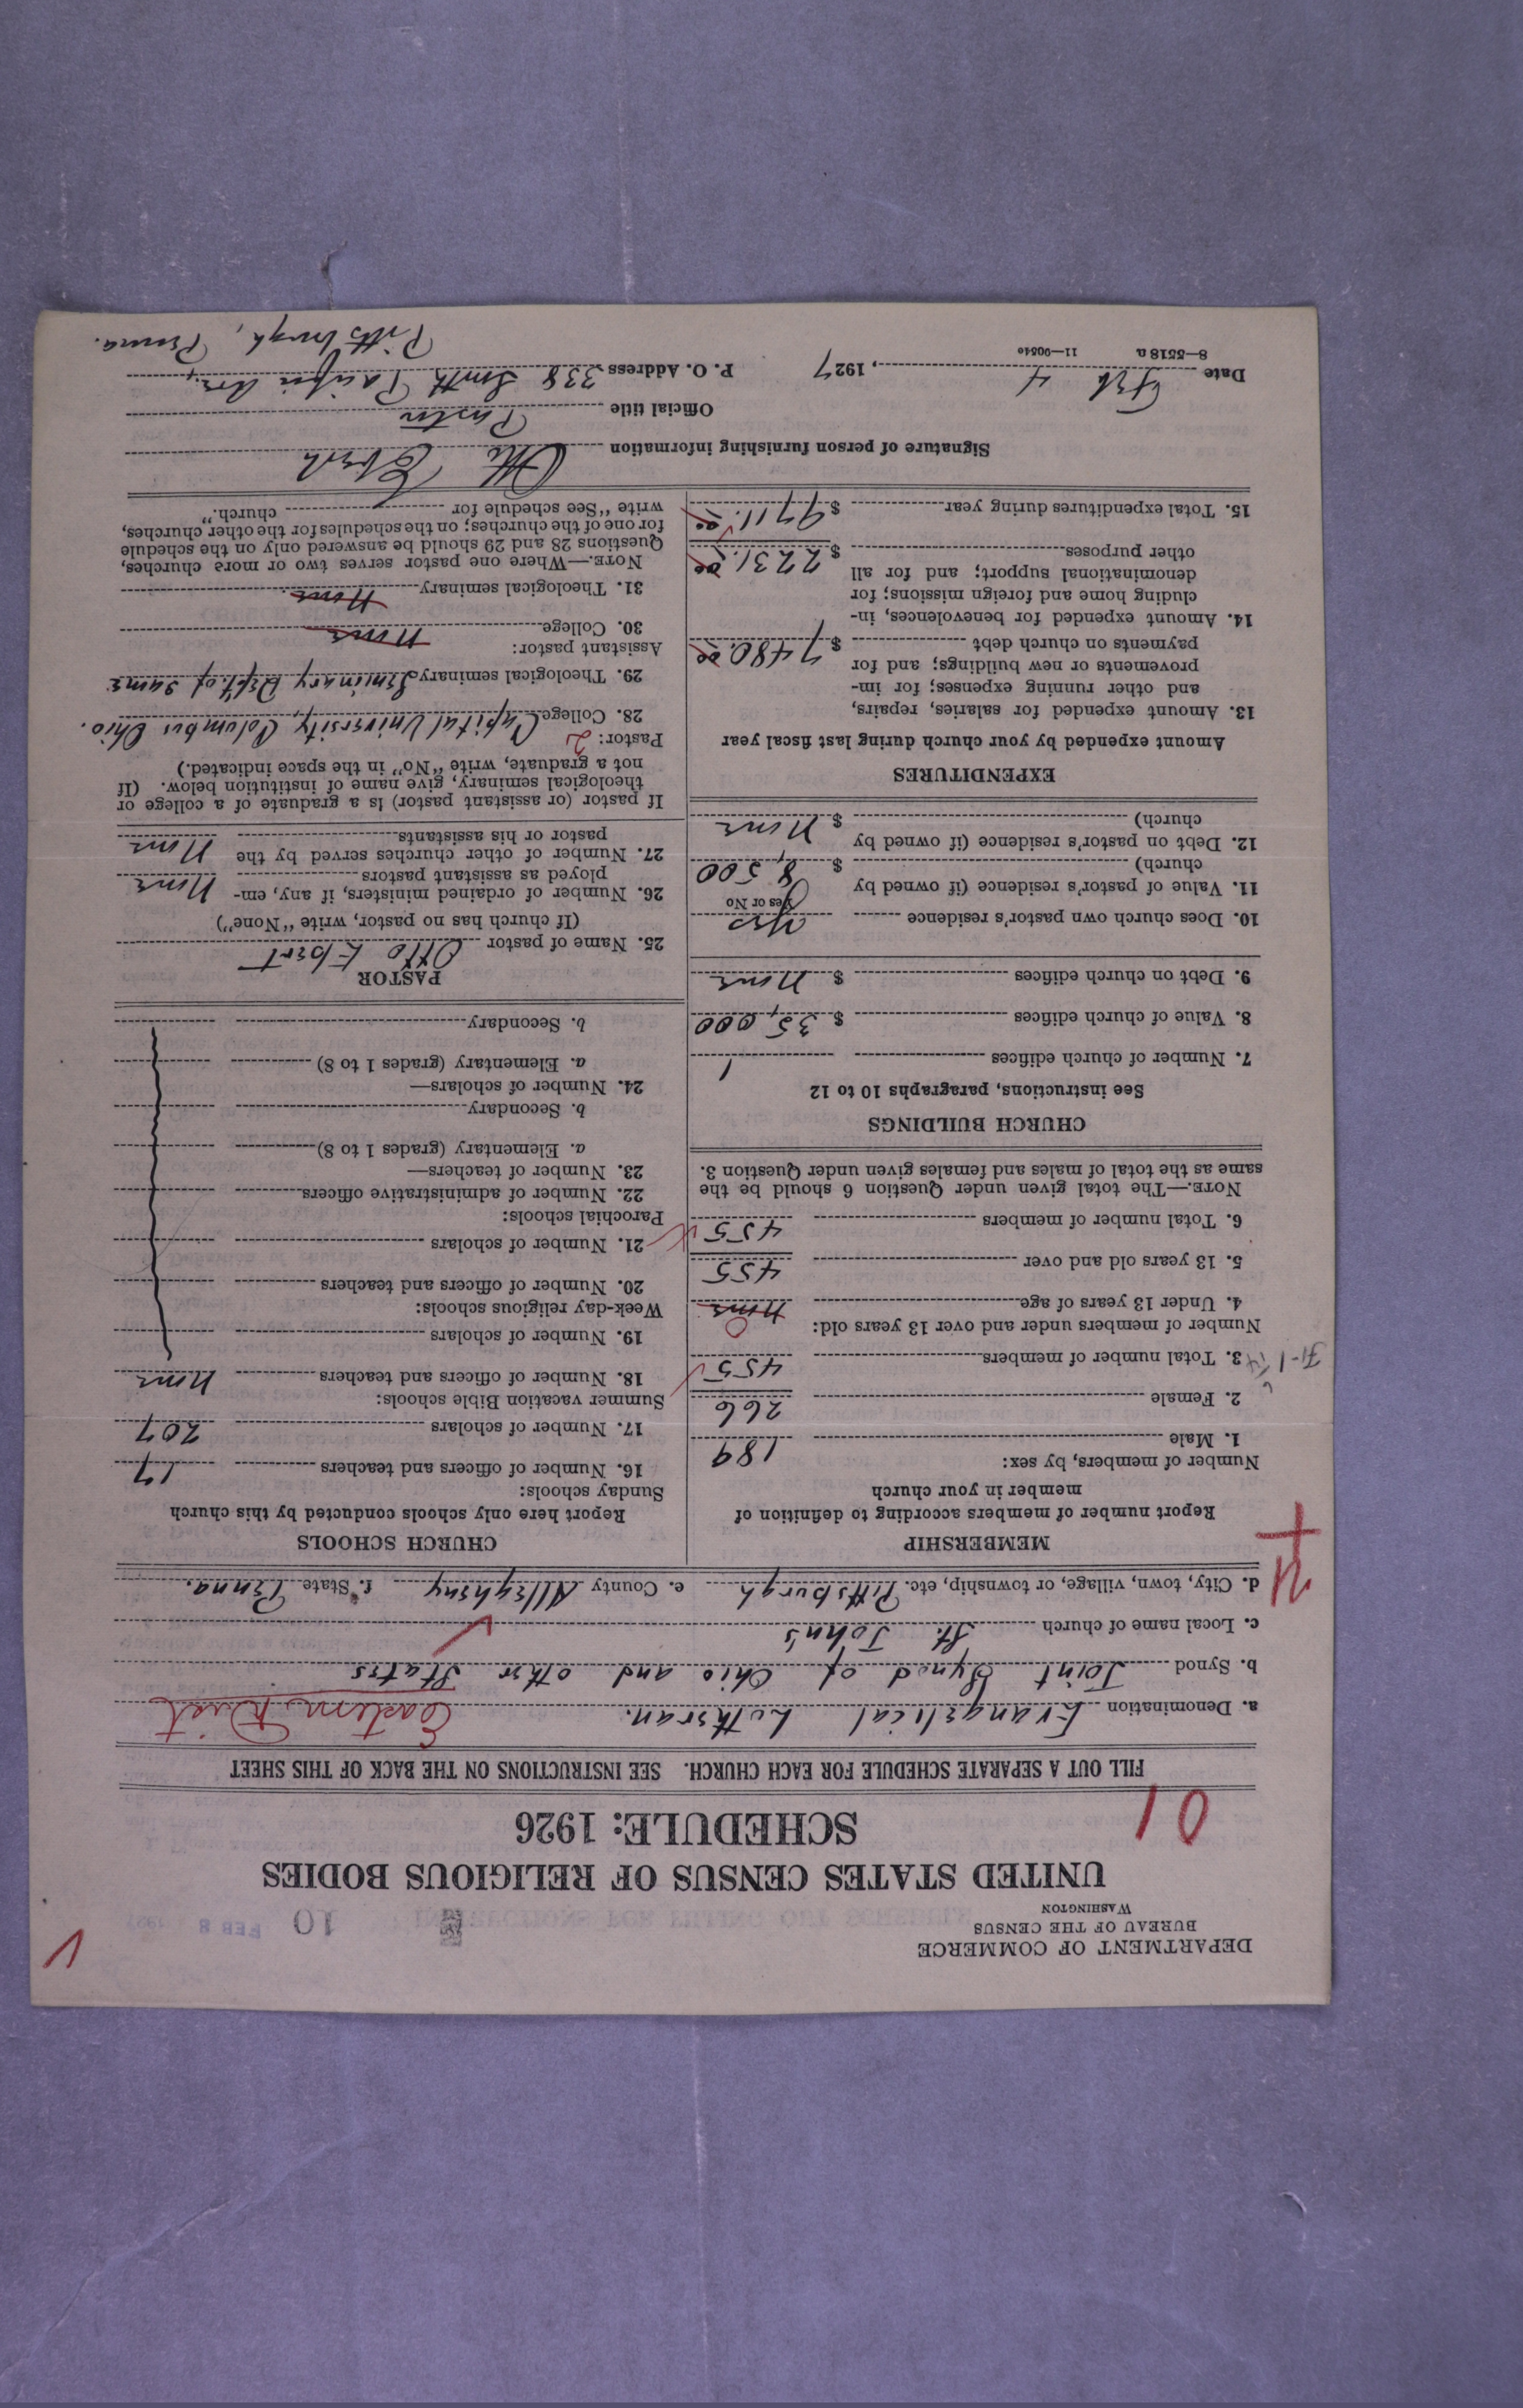 DEPARTMENT OF COMMERCE
BUREAU OF THE CENSUS
WASHINGTON
10 FEB 8 1927
UNITED STATES CENSUS OF RELIGIOUS BODIES
SCHEDULE: 1926
01
FILL OUT A SEPARATE SCHEDULE FOR EACH CHURCH. SEE INSTRUCTIONS ON THE BACK OF THIS SHEET
a. Denomination Evangelical Lutheran. Eastern Dist
b. Synod Joint Synod of Ohio and other States
c. Local name of church St. John's
d. City, town, village, or township, etc. Pittsburgh e. County Allegheny f. State Penna.
MEMBERSHIP
Report number of members according to definition of
member in your church
Number of members, by sex:
1. Male 189
2. Female 266
3. Total number of members 455
Number of members under and over 13 years old:
4. Under 13 years of age None 0
5. 13 years old and over 455
6. Total number of members 455
NOTE.—The total given under Question 6 should be the
same as the total of males and females given under Question 3.
CHURCH BUILDINGS
See instructions, paragraphs 10 to 12
7. Number of church edifices 1
8. Value of church edifices $ 35,000
9. Debt on church edifices $ None
10. Does church own pastor's residence Yes
Yes or No
11. Value of pastor's residence (if owned by
church) $ 8,500
12. Debt on pastor's residence (if owned by
church) $ None
EXPENDITURES
Amount expended by your church during last fiscal year
13. Amount expended for salaries, repairs,
and other running expenses; for im-
provements or new buildings; and for
payments on church debt $ 7480.00
14. Amount expended for benevolences, in-
cluding home and foreign missions; for
denominational support; and for all
other purposes $ 2231.00
15. Total expenditures during year $ 9711.00
CHURCH SCHOOLS
Report here only schools conducted by this church
Sunday schools:
16. Number of officers and teachers 17
17. Number of scholars 207
Summer vacation Bible schools:
18. Number of officers and teachers None
19. Number of scholars
Week-day religious schools:
20. Number of officers and teachers
21. Number of scholars
Parochial schools:
22. Number of administrative officers
23. Number of teachers—
a. Elementary (grades 1 to 8)
b. Secondary
24. Number of scholars—
a. Elementary (grades 1 to 8)
b. Secondary
PASTOR
25. Name of pastor Otto Ebert
(If church has no pastor, write "None")
26. Number of ordained ministers, if any, em-
ployed as assistant pastors None
27. Number of other churches served by the
pastor or his assistants None
If pastor (or assistant pastor) is a graduate of a college or
theological seminary, give name of institution below. (If
not a graduate, write "No" in the space indicated.)
Pastor: 2
28. College Capital University, Columbus Ohio.
29. Theological seminary Seminary Dept. of same
Assistant pastor:
30. College None
31. Theological seminary None
NOTE.—Where one pastor serves two or more churches,
Questions 28 and 29 should be answered only on the schedule
for one of the churches; on the schedules for the other churches,
write "See schedule for church."
Signature of person furnishing information Otto Ebert
Official title Pastor
Date Feb 4, 1927 P. O. Address 338 South Pacific Ave.,
Pittsburgh, Penna.
8—5518 a